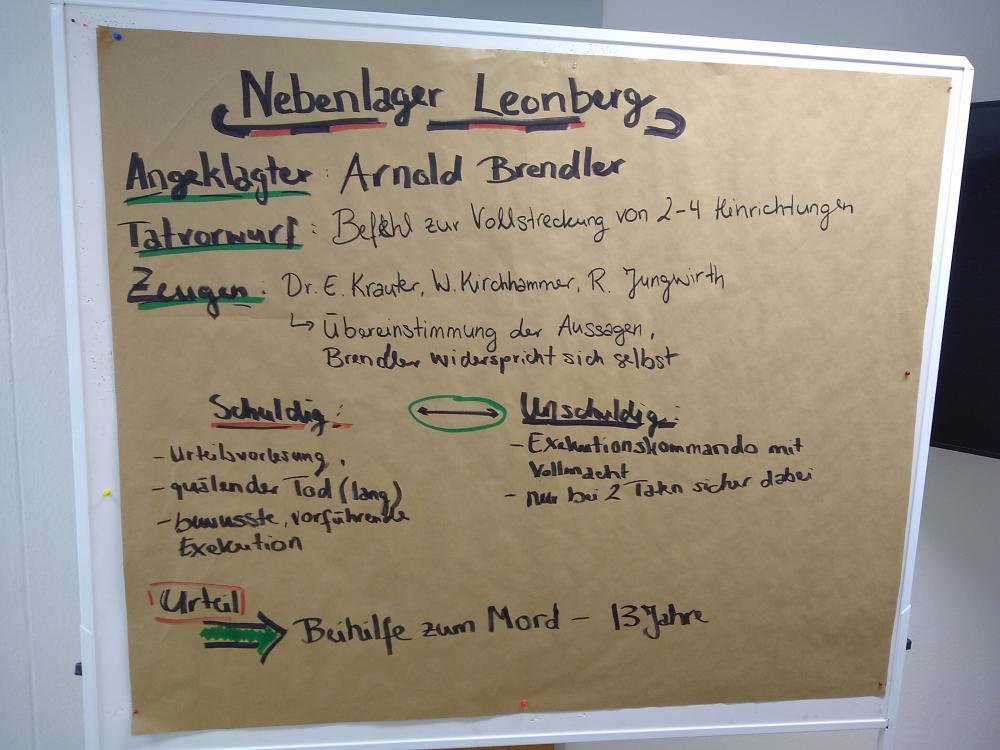 Nebenlager Leonberg
Angeklagter: Arnold Brendler
Tatvorwurf: Befehl zur Vollstreckung von 2-4 Hinrichtungen
Zeugen: Dr. E. Krauter, W. Kirchhammer, R. Jungwirth
↳ Übereinstimmung der Aussagen,
Brendler widerspricht sich selbst
Schuldig: ↔ Unschuldig:
- Urteilsvorlesung,
- quälender Tod (lang)
- bewusste, vorführende
Exekution
- Exekutionskommando mit
Vollmacht
- nur bei 2 Taten sicher dabei
Urteil
Beihilfe zum Mord - 13 Jahre